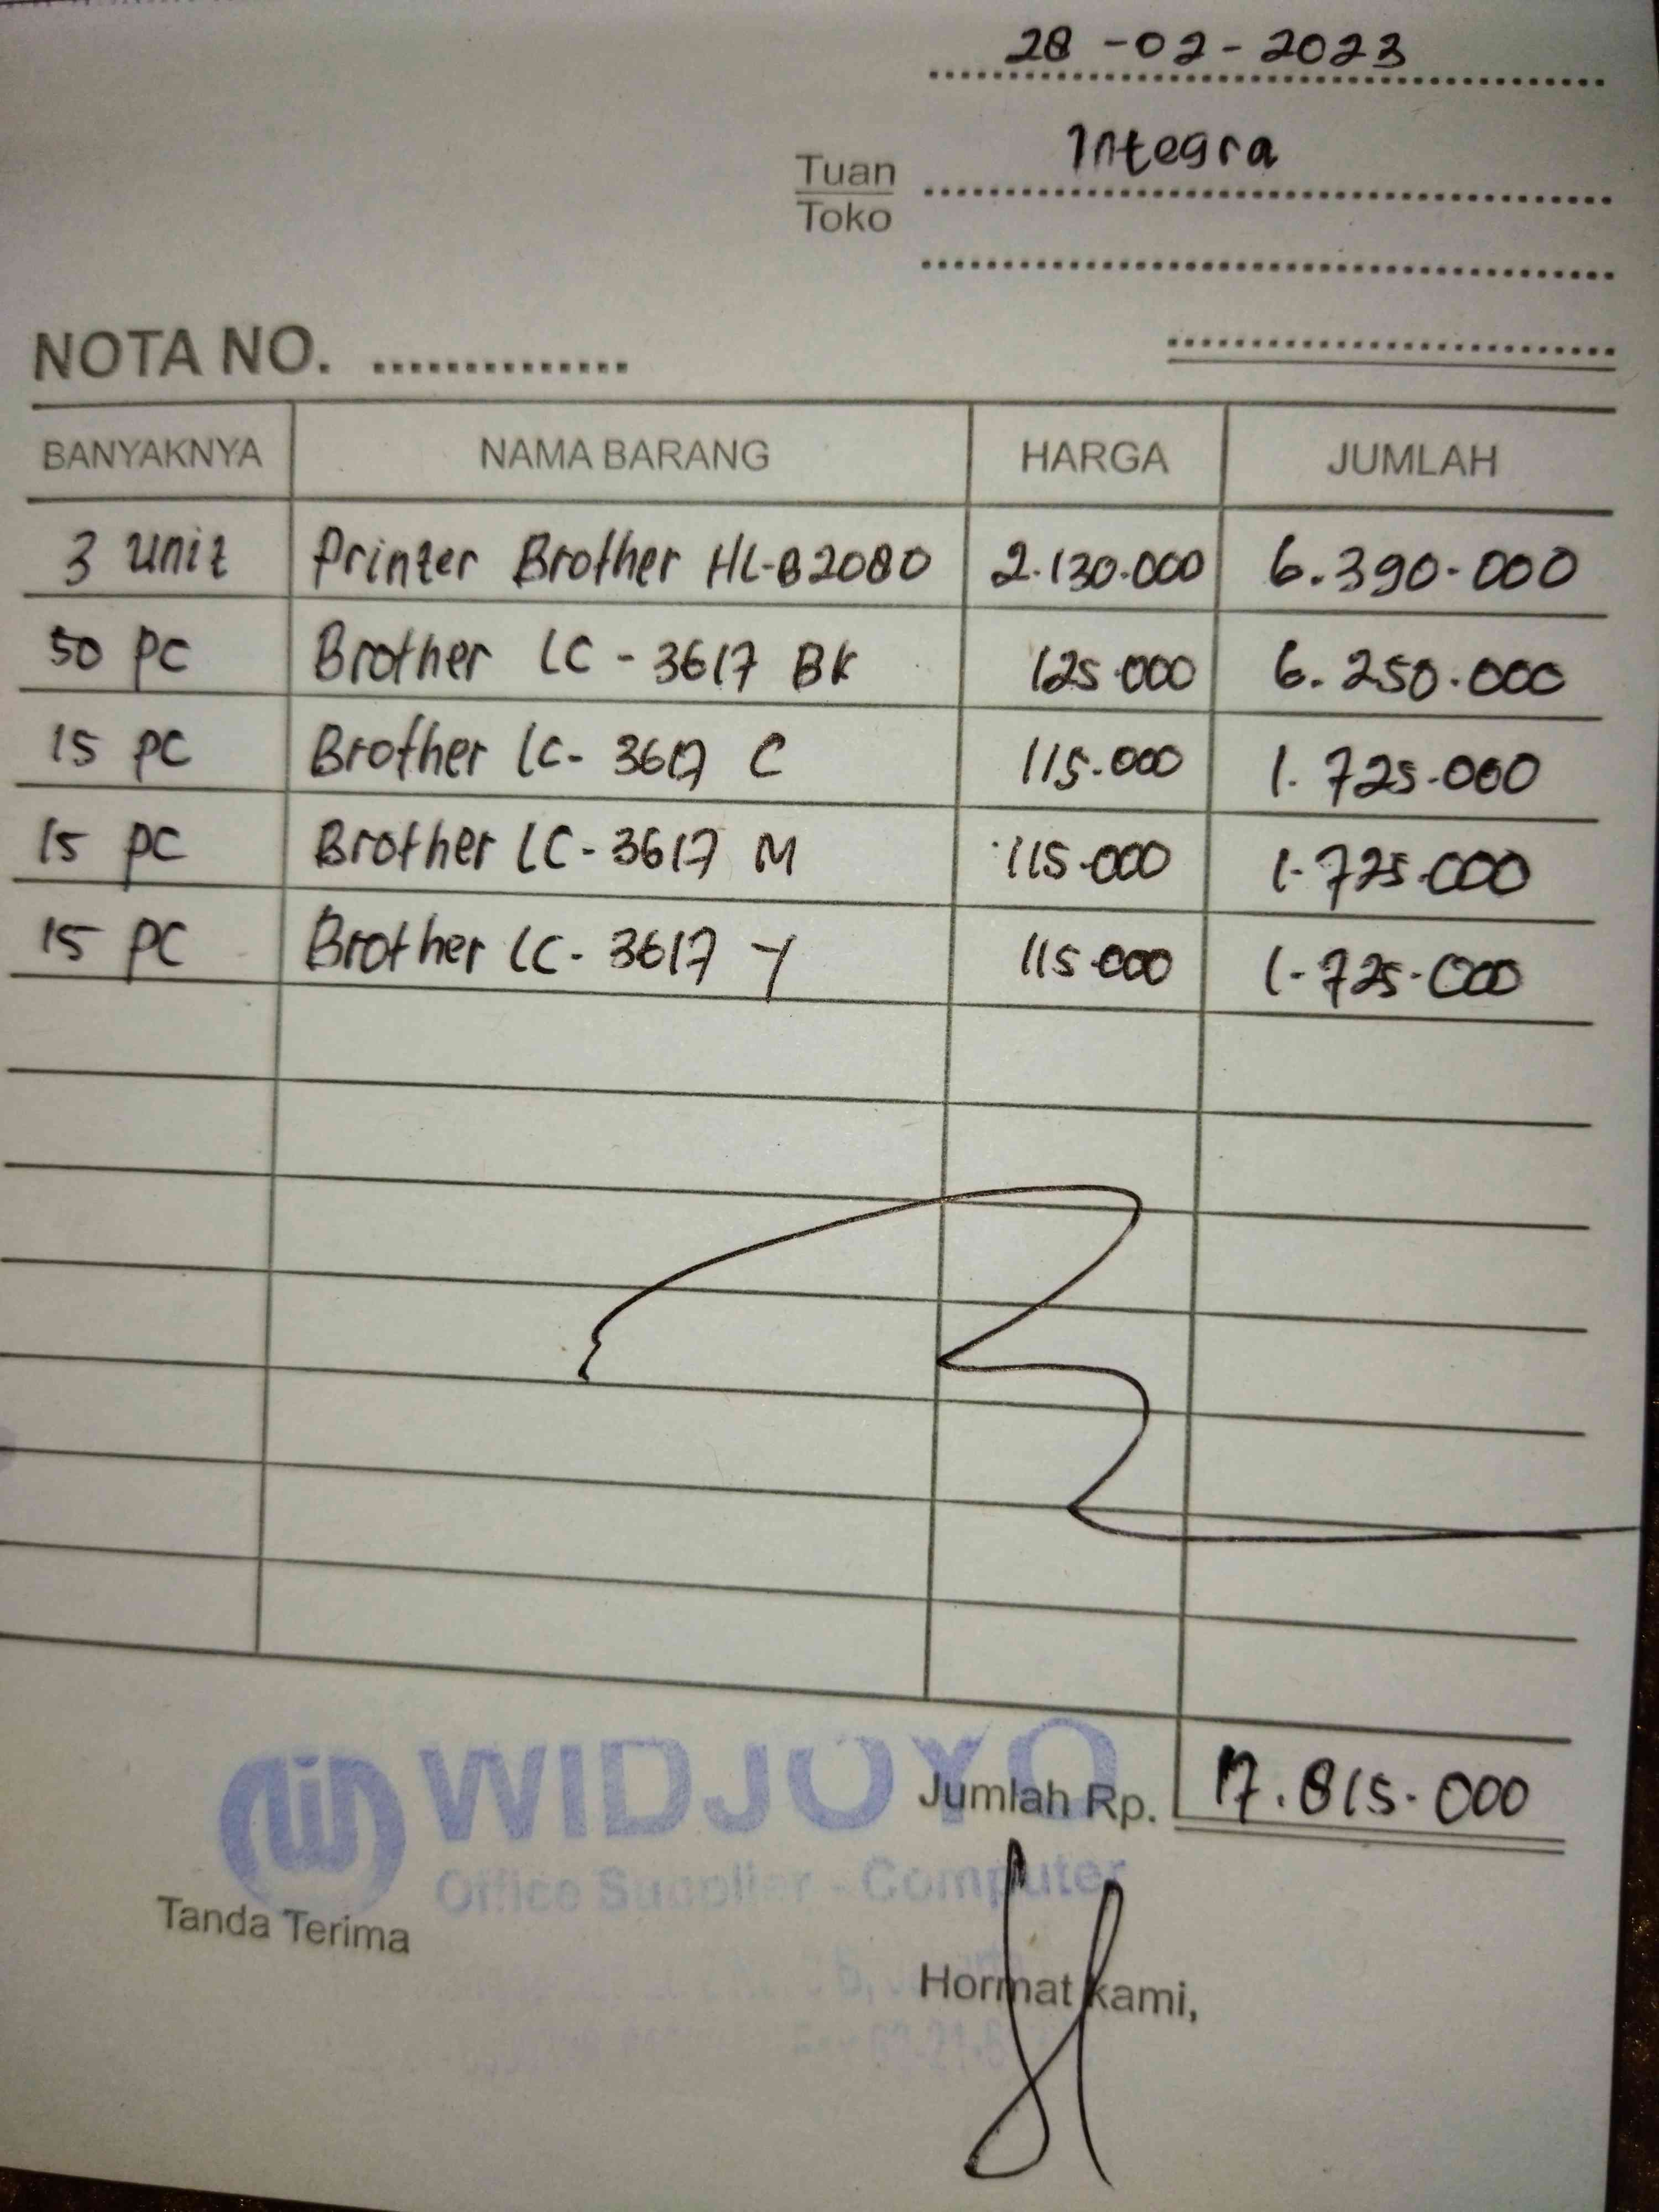 28-02-2023
Tuan Integra
Toko
NOTA NO. ..............
BANYAKNYA NAMA BARANG HARGA JUMLAH
3 Unit Printer Brother HL-B2080 2.130.000 6.390.000
50 PC Brother LC-3617 BK 125.000 6.250.000
15 PC Brother LC-3617 C 115.000 1.725.000
15 PC Brother LC-3617 M 115.000 1.725.000
15 PC Brother LC-3617 Y 115.000 1.725.000
WIDJOYO
Jumlah Rp. 17.815.000
Office Supplier - Computer
Tanda Terima
Hormat kami,